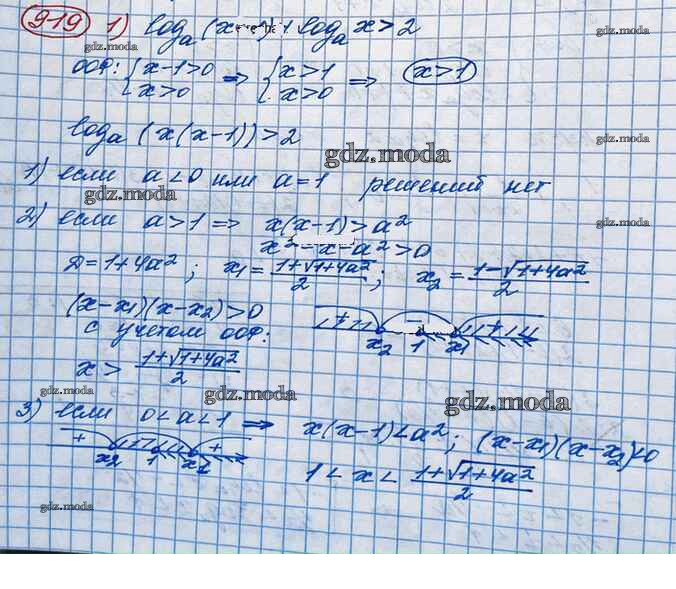 919 1) log_a (x-1) + log_a x > 2
gdz.moda gdz.moda
ООФ: { x-1>0 x>0 => { x>1 x>0 => x>1
gdz.moda
log_a (x(x-1)) > 2
gdz.moda
gdz.moda
1) если a<0 или a=1 решений нет
gdz.moda
gdz.moda
2) если a>1 => x(x-1)>a²
x²-x-a²>0
D=1+4a²; x₁=(1+√1+4a²)/2; x₂=(1-√1+4a²)/2
(x-x₁)(x-x₂)>0
+ - +
с учетом ООФ:
x₂ 1 x₁
x > (1+√1+4a²)/2
gdz.moda
gdz.moda
gdz.moda
gdz.moda
3) если 0<a<1 => x(x-1)<a²; (x-x₁)(x-x₂)<0
+ - +
x₂ 1
1 < x < (1+√1+4a²)/2
gdz.moda
gdz.moda